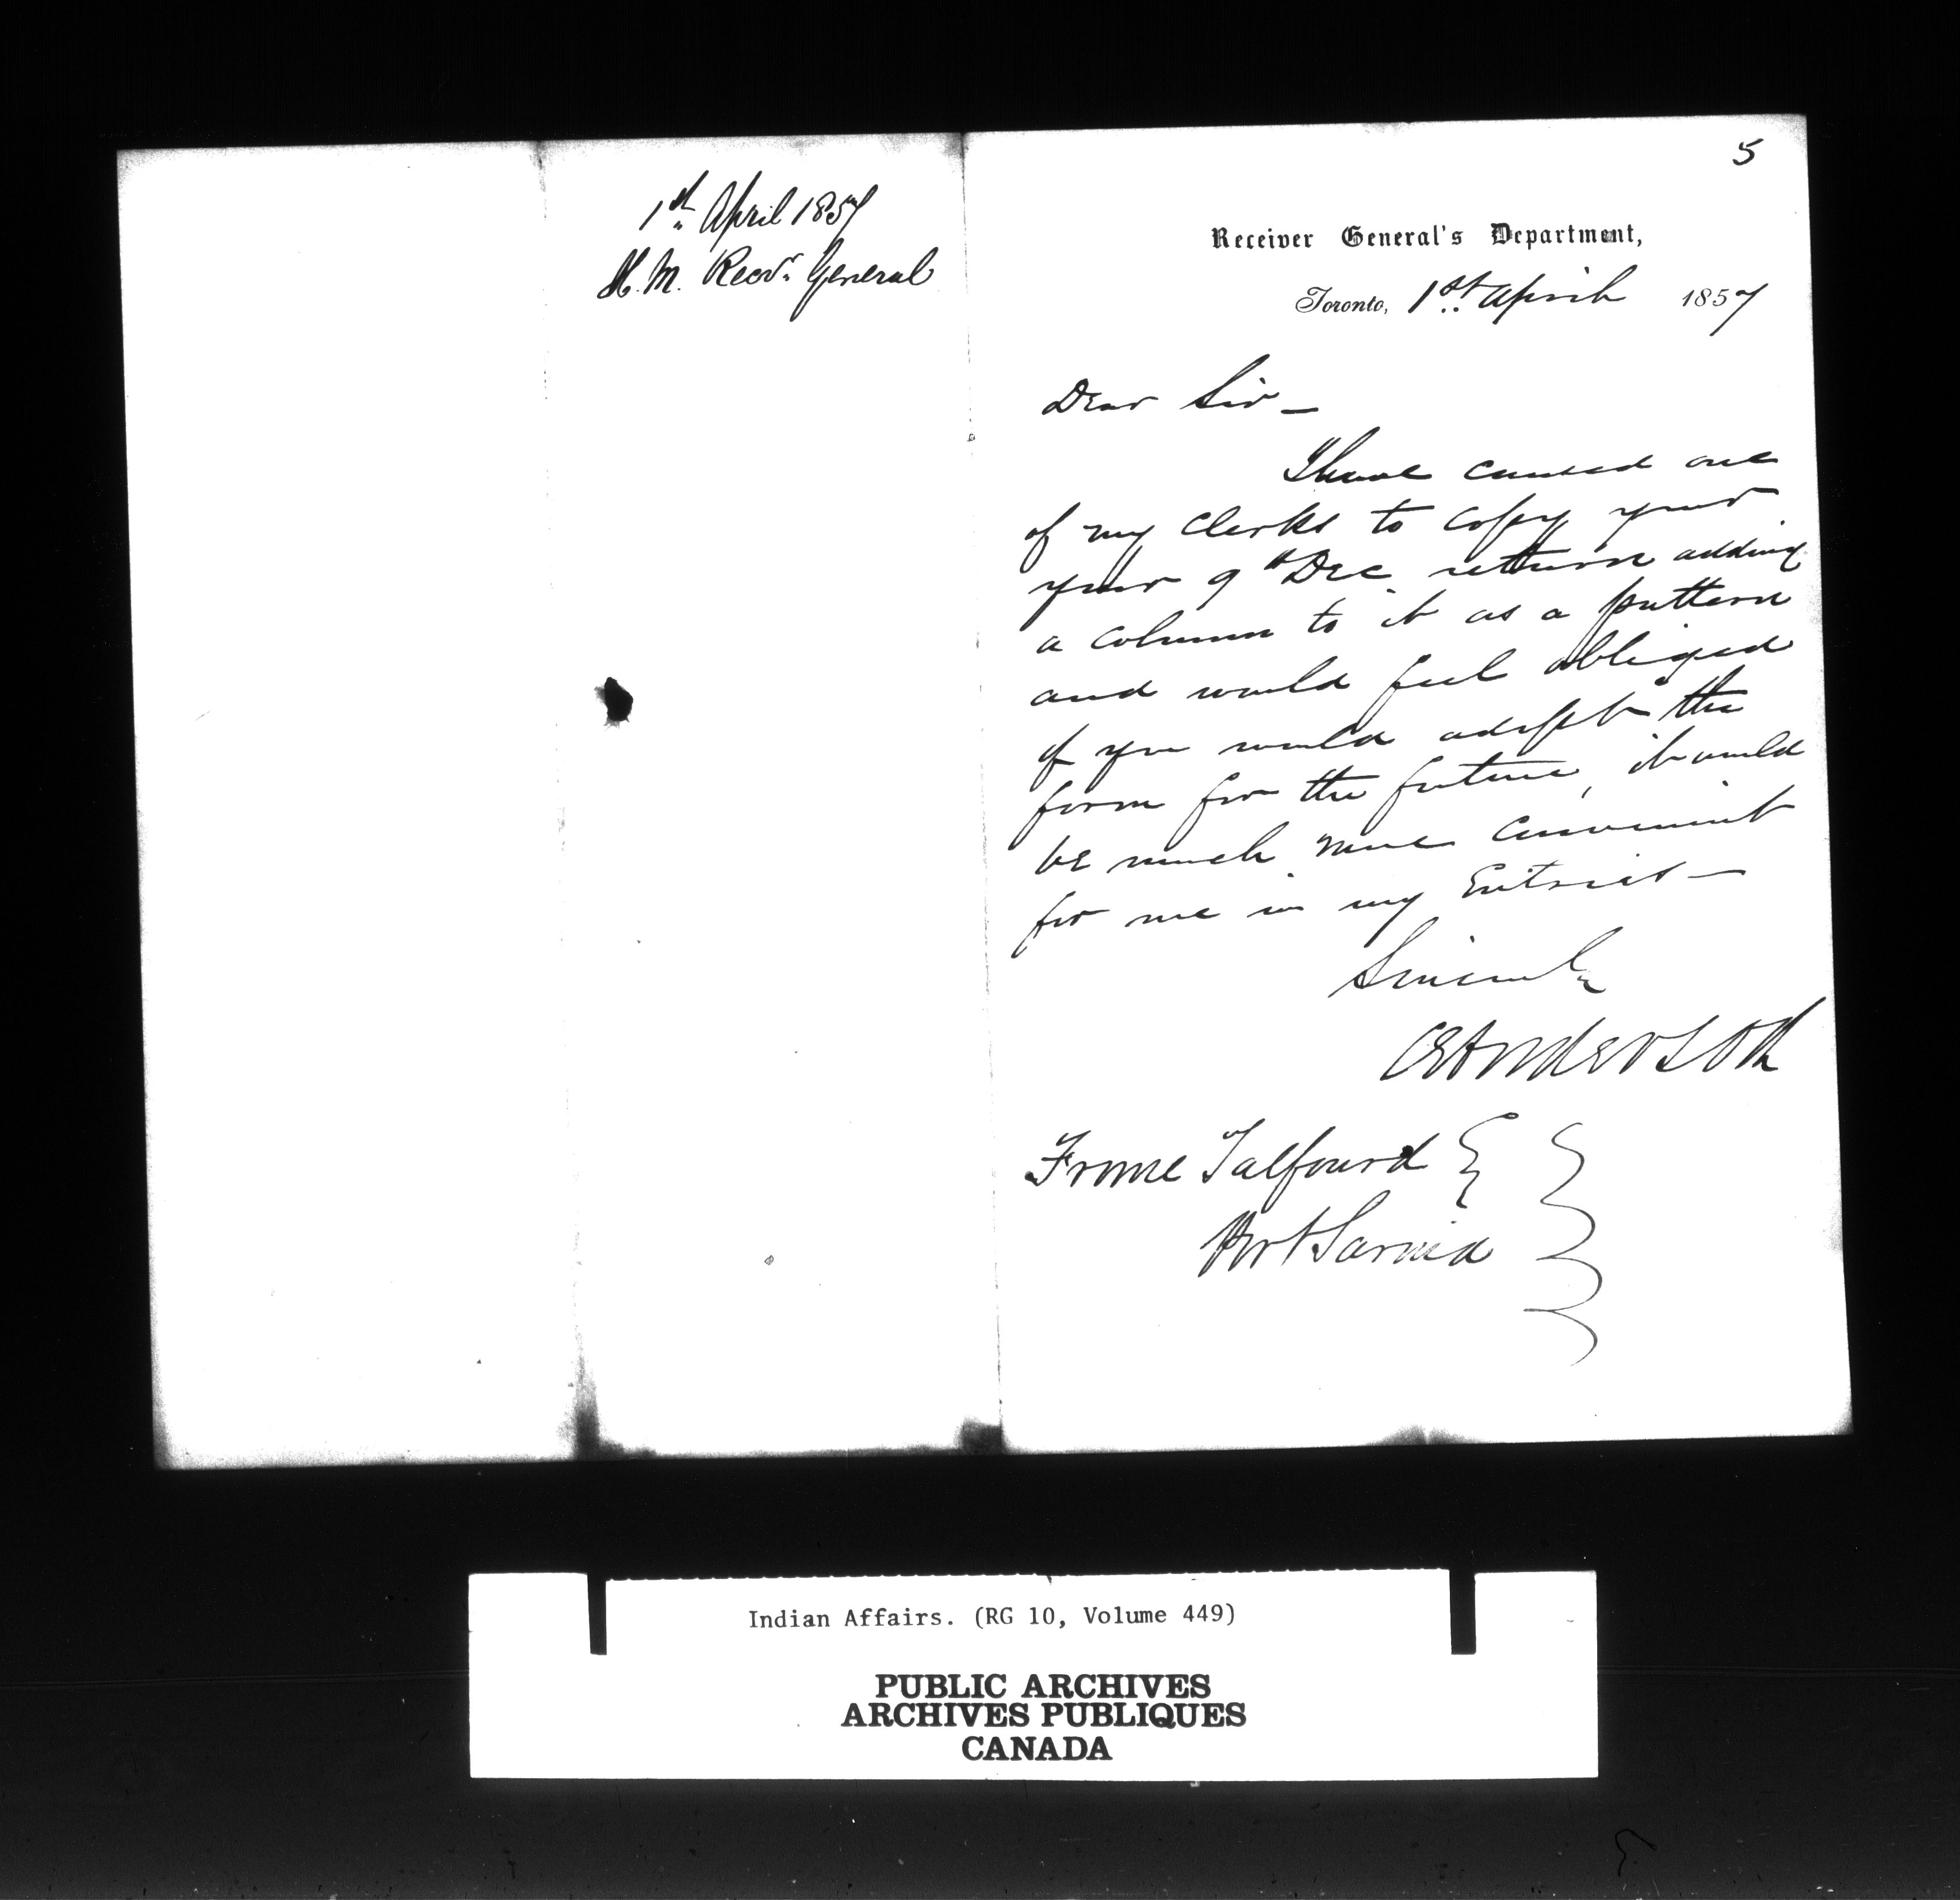 1st April 1857
H. M. Recvr General
5
Receiver General's Department,
Toronto, 1st April 1857
Dear Sir —
I have caused one
of my clerks to copy your
your 9th Dec return adding
a column to it as a pattern
and would feel obliged
if you would adopt the
form for the future, it would
be much more convenient
for me in my Entries —
Sincerely
CEAnderson
Frome Talfourd
Port Sarnia
Indian Affairs. (RG 10, Volume 449)
PUBLIC ARCHIVES
ARCHIVES PUBLIQUES
CANADA